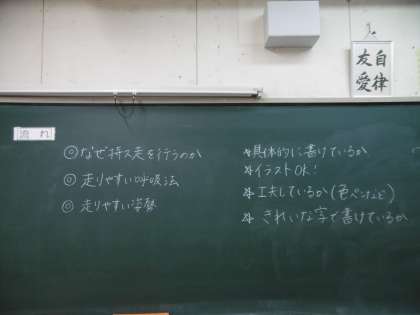 自律
友愛
流れ
◎なぜ持久走を行うのか
◎走りやすい呼吸法
◎走りやすい姿勢
☆具体的に書けているか
☆イラストOK!
☆工夫しているか(色ペンなど)
☆きれいな字で書けているか